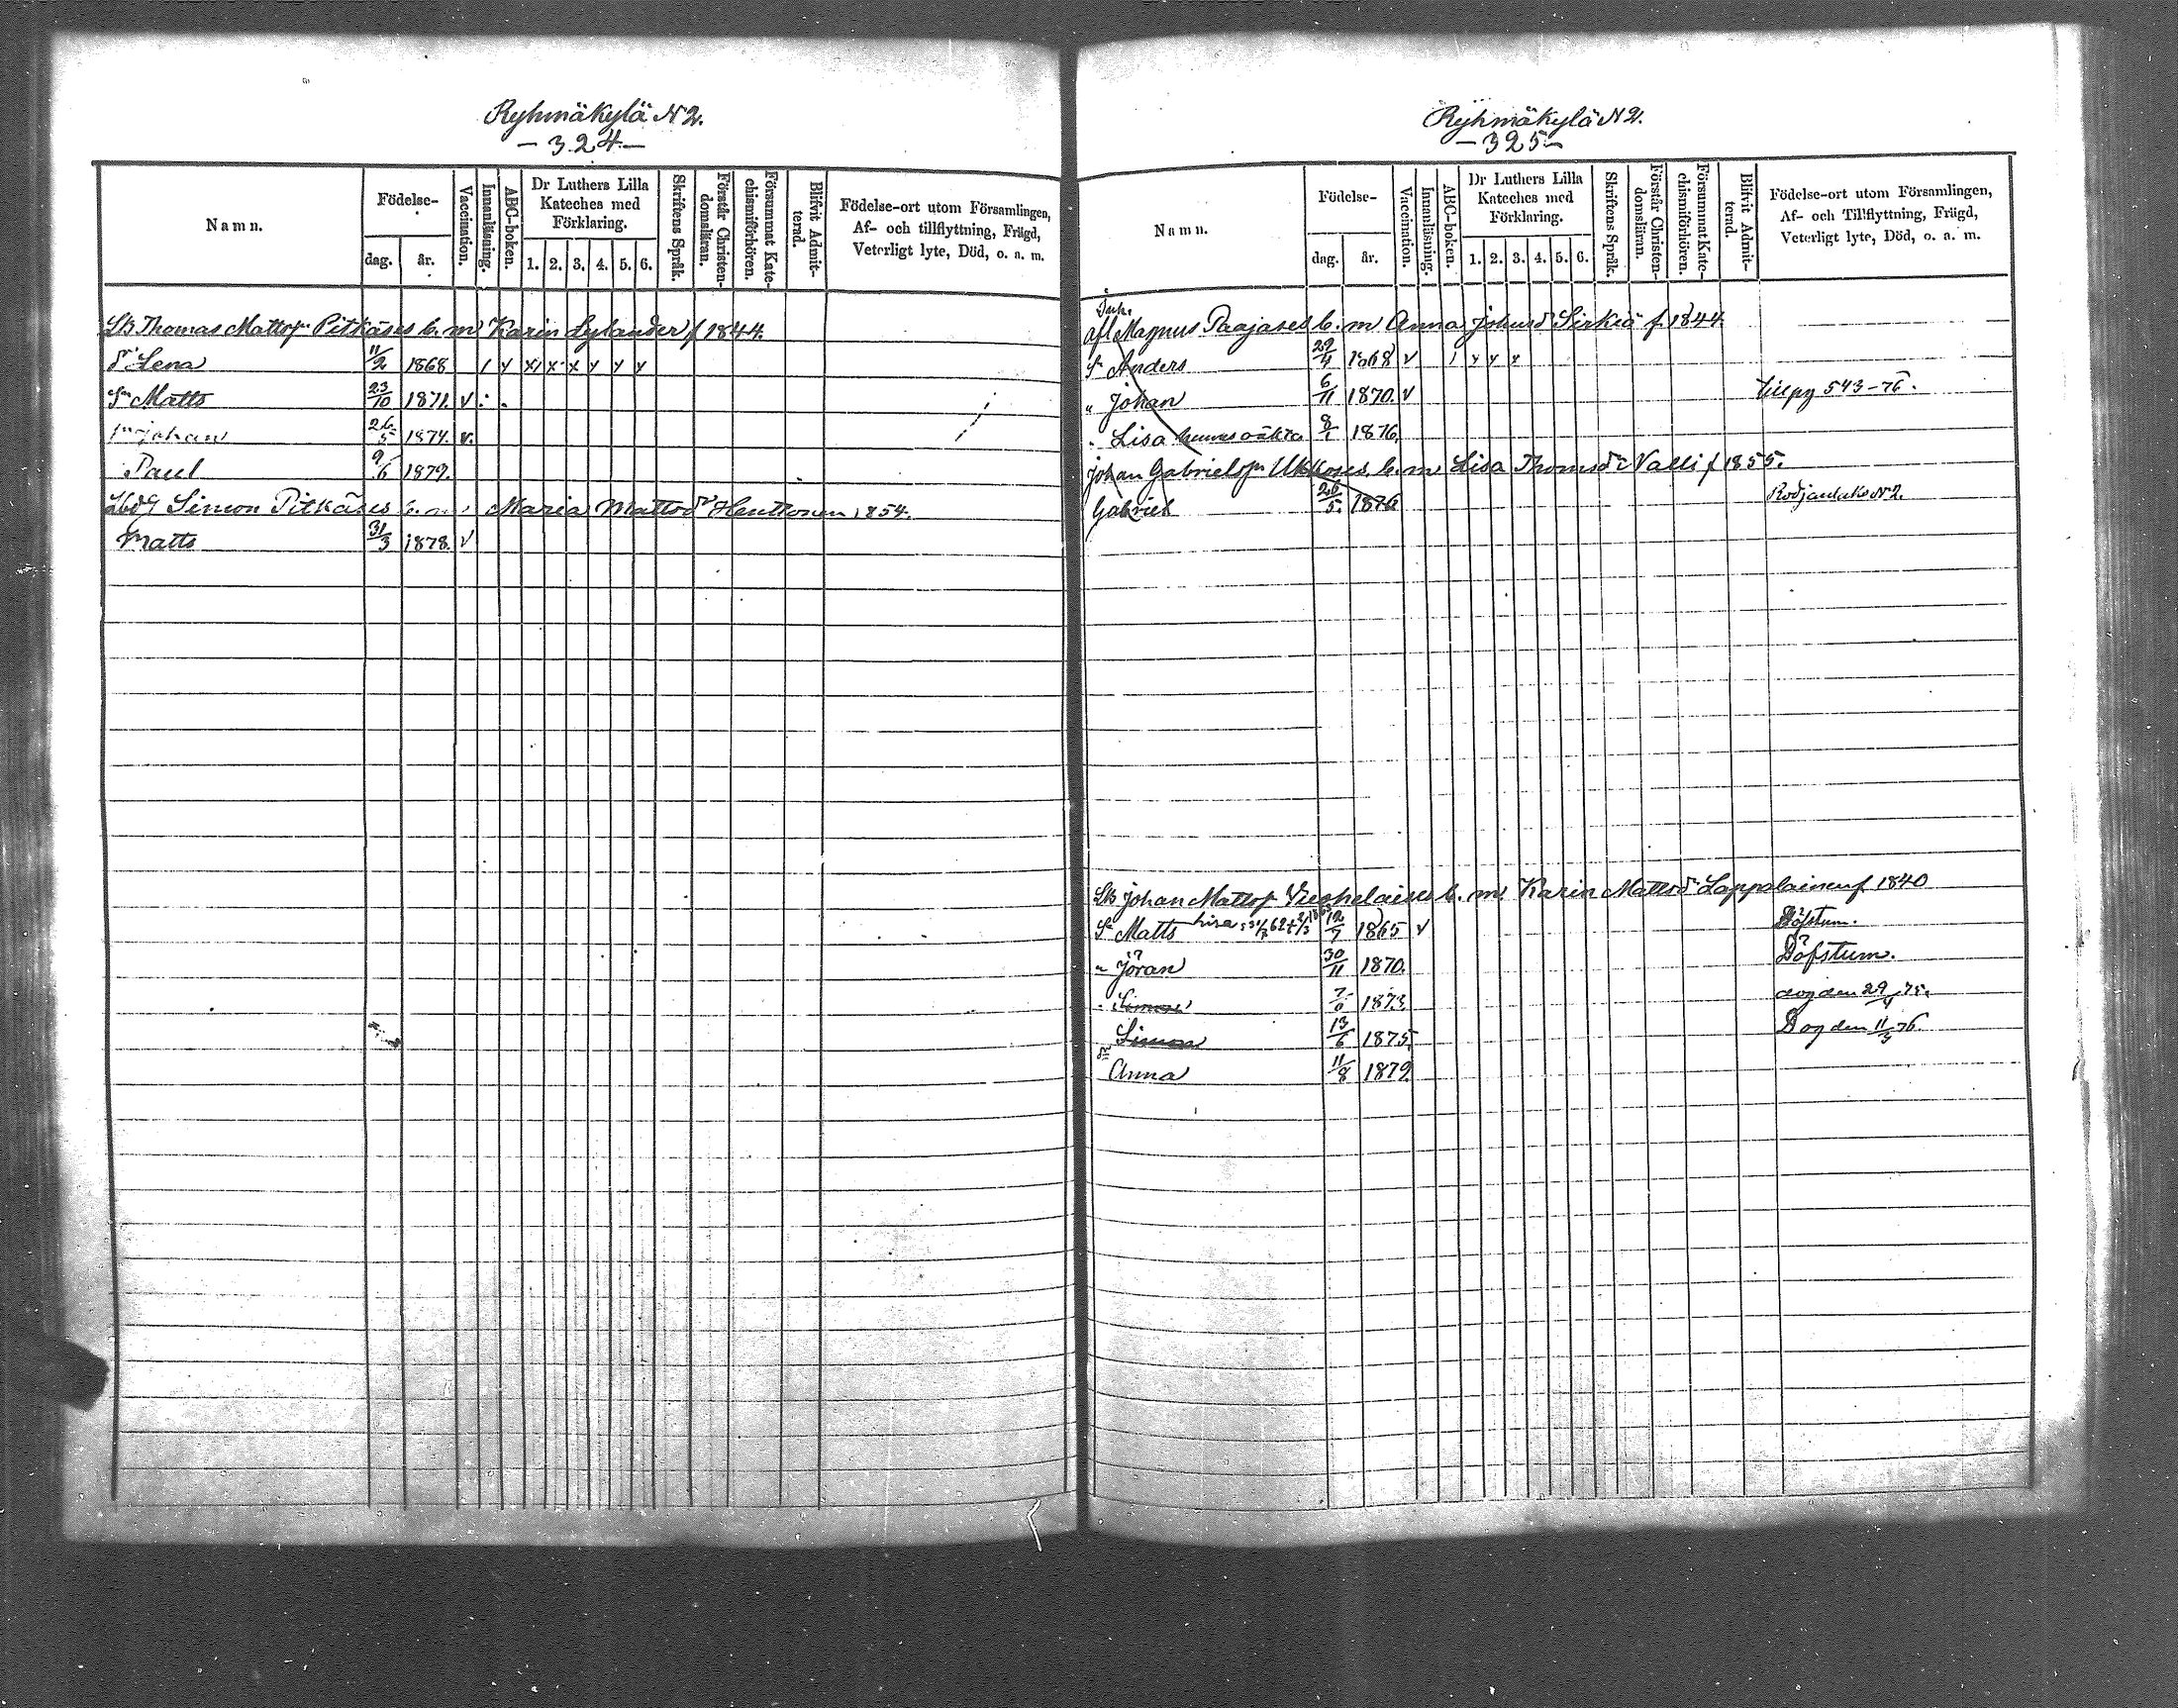 Ryhmäkylä N 2.
- 324 -
Namn.
Födelse-
dag.
år.
Vaccination.
Innanläsning.
ABC-boken.
Dr Luthers Lilla
Kateches med
Förklaring.
1. 2. 3. 4. 5. 6.
Skriftens Språk.
Förstår Christen-
domsläran.
Försummat Kate-
chismiförhören.
Blifvit Admit-
terad.
Födelse-ort utom Församlingen,
Af- och tillflyttning, Frägd,
Veterligt lyte, Död, o. a. m.
Thomas Mattsn Pitkäses b. m. Karin Lylander f 1844.
dr Lena 11/2 1868 1 y x x x y y y
Sn Matts 23/10 1871. v
Johan 26/5 1874. v.
Paul 9/6 1879.
Simon Pitkäses b. m. Maria Mattsdr Henttonen 1854.
Matts 31/3 1878. v
Ryhmäkylä N 2.
- 325 -
Namn.
Födelse-
dag.
år.
Vaccination.
Innanläsning.
ABC-boken.
Dr Luthers Lilla
Kateches med
Förklaring.
1. 2. 3. 4. 5. 6.
Skriftens Språk.
Förstår Christen-
domsläran.
Försummat Kate-
chismiförhören.
Blifvit Admit-
terad.
Födelse-ort utom Församlingen,
Af- och Tillflyttning, Frägd,
Veterligt lyte, Död, o. a. m.
Inh.
afl Magnus Paajases b. m Anna Johnsd Sirkiä f. 1844
Sn Anders 29/4 1868 v 1 x x x
" Johan 6/11 1870. v 543-76.
" Lisa 8/1 1876
Johan Gabrielspn Ukkoses b. m Lisa Thomsdr Valli f 1855.
Gabriel 26/5. 1876 N 2.
Johan Mattsp b. m. Karin Mattsdr Lappalainen f 1840
Sn Matts 12/7 1865 v Döfstum.
" Jöran 30/11 1870. Döfstum.
" Simon 1873. dog den 29/4 75.
Simon 13/6 1875. Dog den 11/3 76.
dr
Anna 11/8 1879.